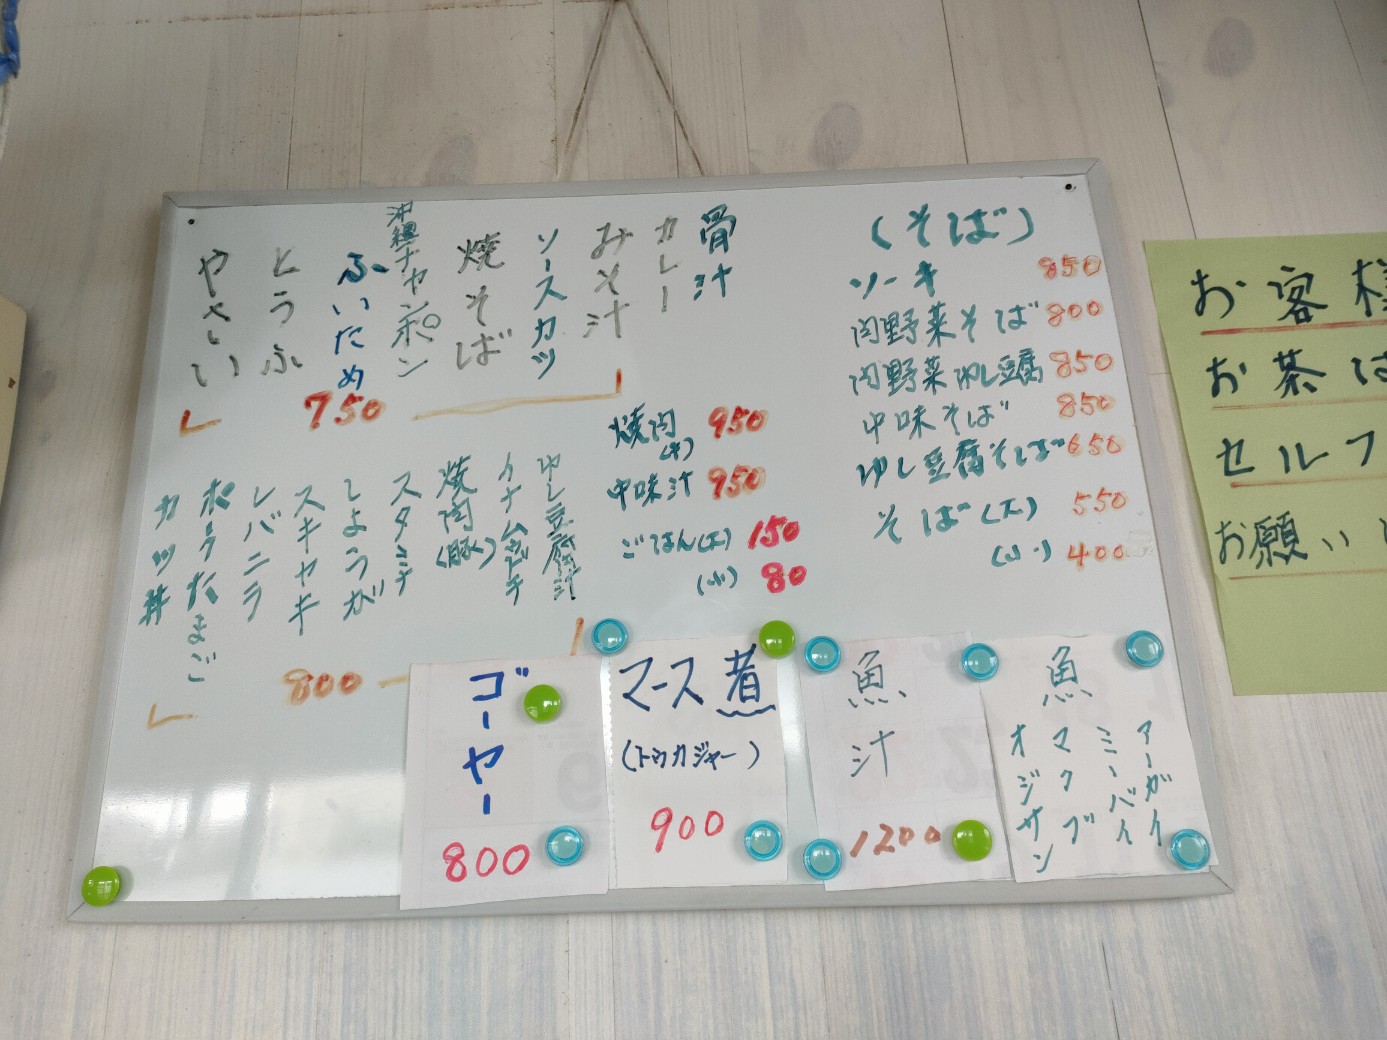 (そば)
ソーキ 850
肉野菜そば 800
肉野菜ゆし豆腐 850
中味そば 850
ゆし豆腐そば 650
そば(大) 550
(小) 400
骨汁
カレー
みそ汁
ソースカツ
焼そば
沖縄チャンポン
ふいため
とうふ
やさい
750
焼肉
(牛) 950
中味汁 950
ごはん(大) 150
(小) 80
ゆし豆腐汁
イナムドゥチ
焼肉(豚)
スタミナ
しょうが
スキヤキ
レバニラ
ポークたまご
カツ丼
800
ゴーヤー
800
マース煮
(トゥカジャー)
900
魚汁
1200
魚
アーガイ
ミーバイ
マクブ
オジサン
お客様
お茶は
セルフ
お願い